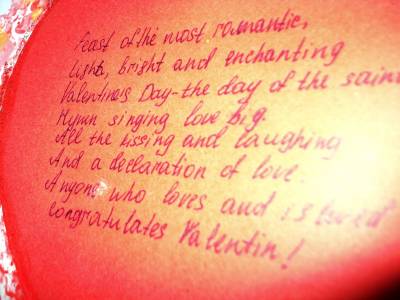 Feast of the most romantic,
Light, bright and enchanting
Valentine's Day-the day of the saint
Hymn singing love big.
All the kissing and laughing
And a declaration of love.
Anyone who loves and is loved
congratulates Valentin!